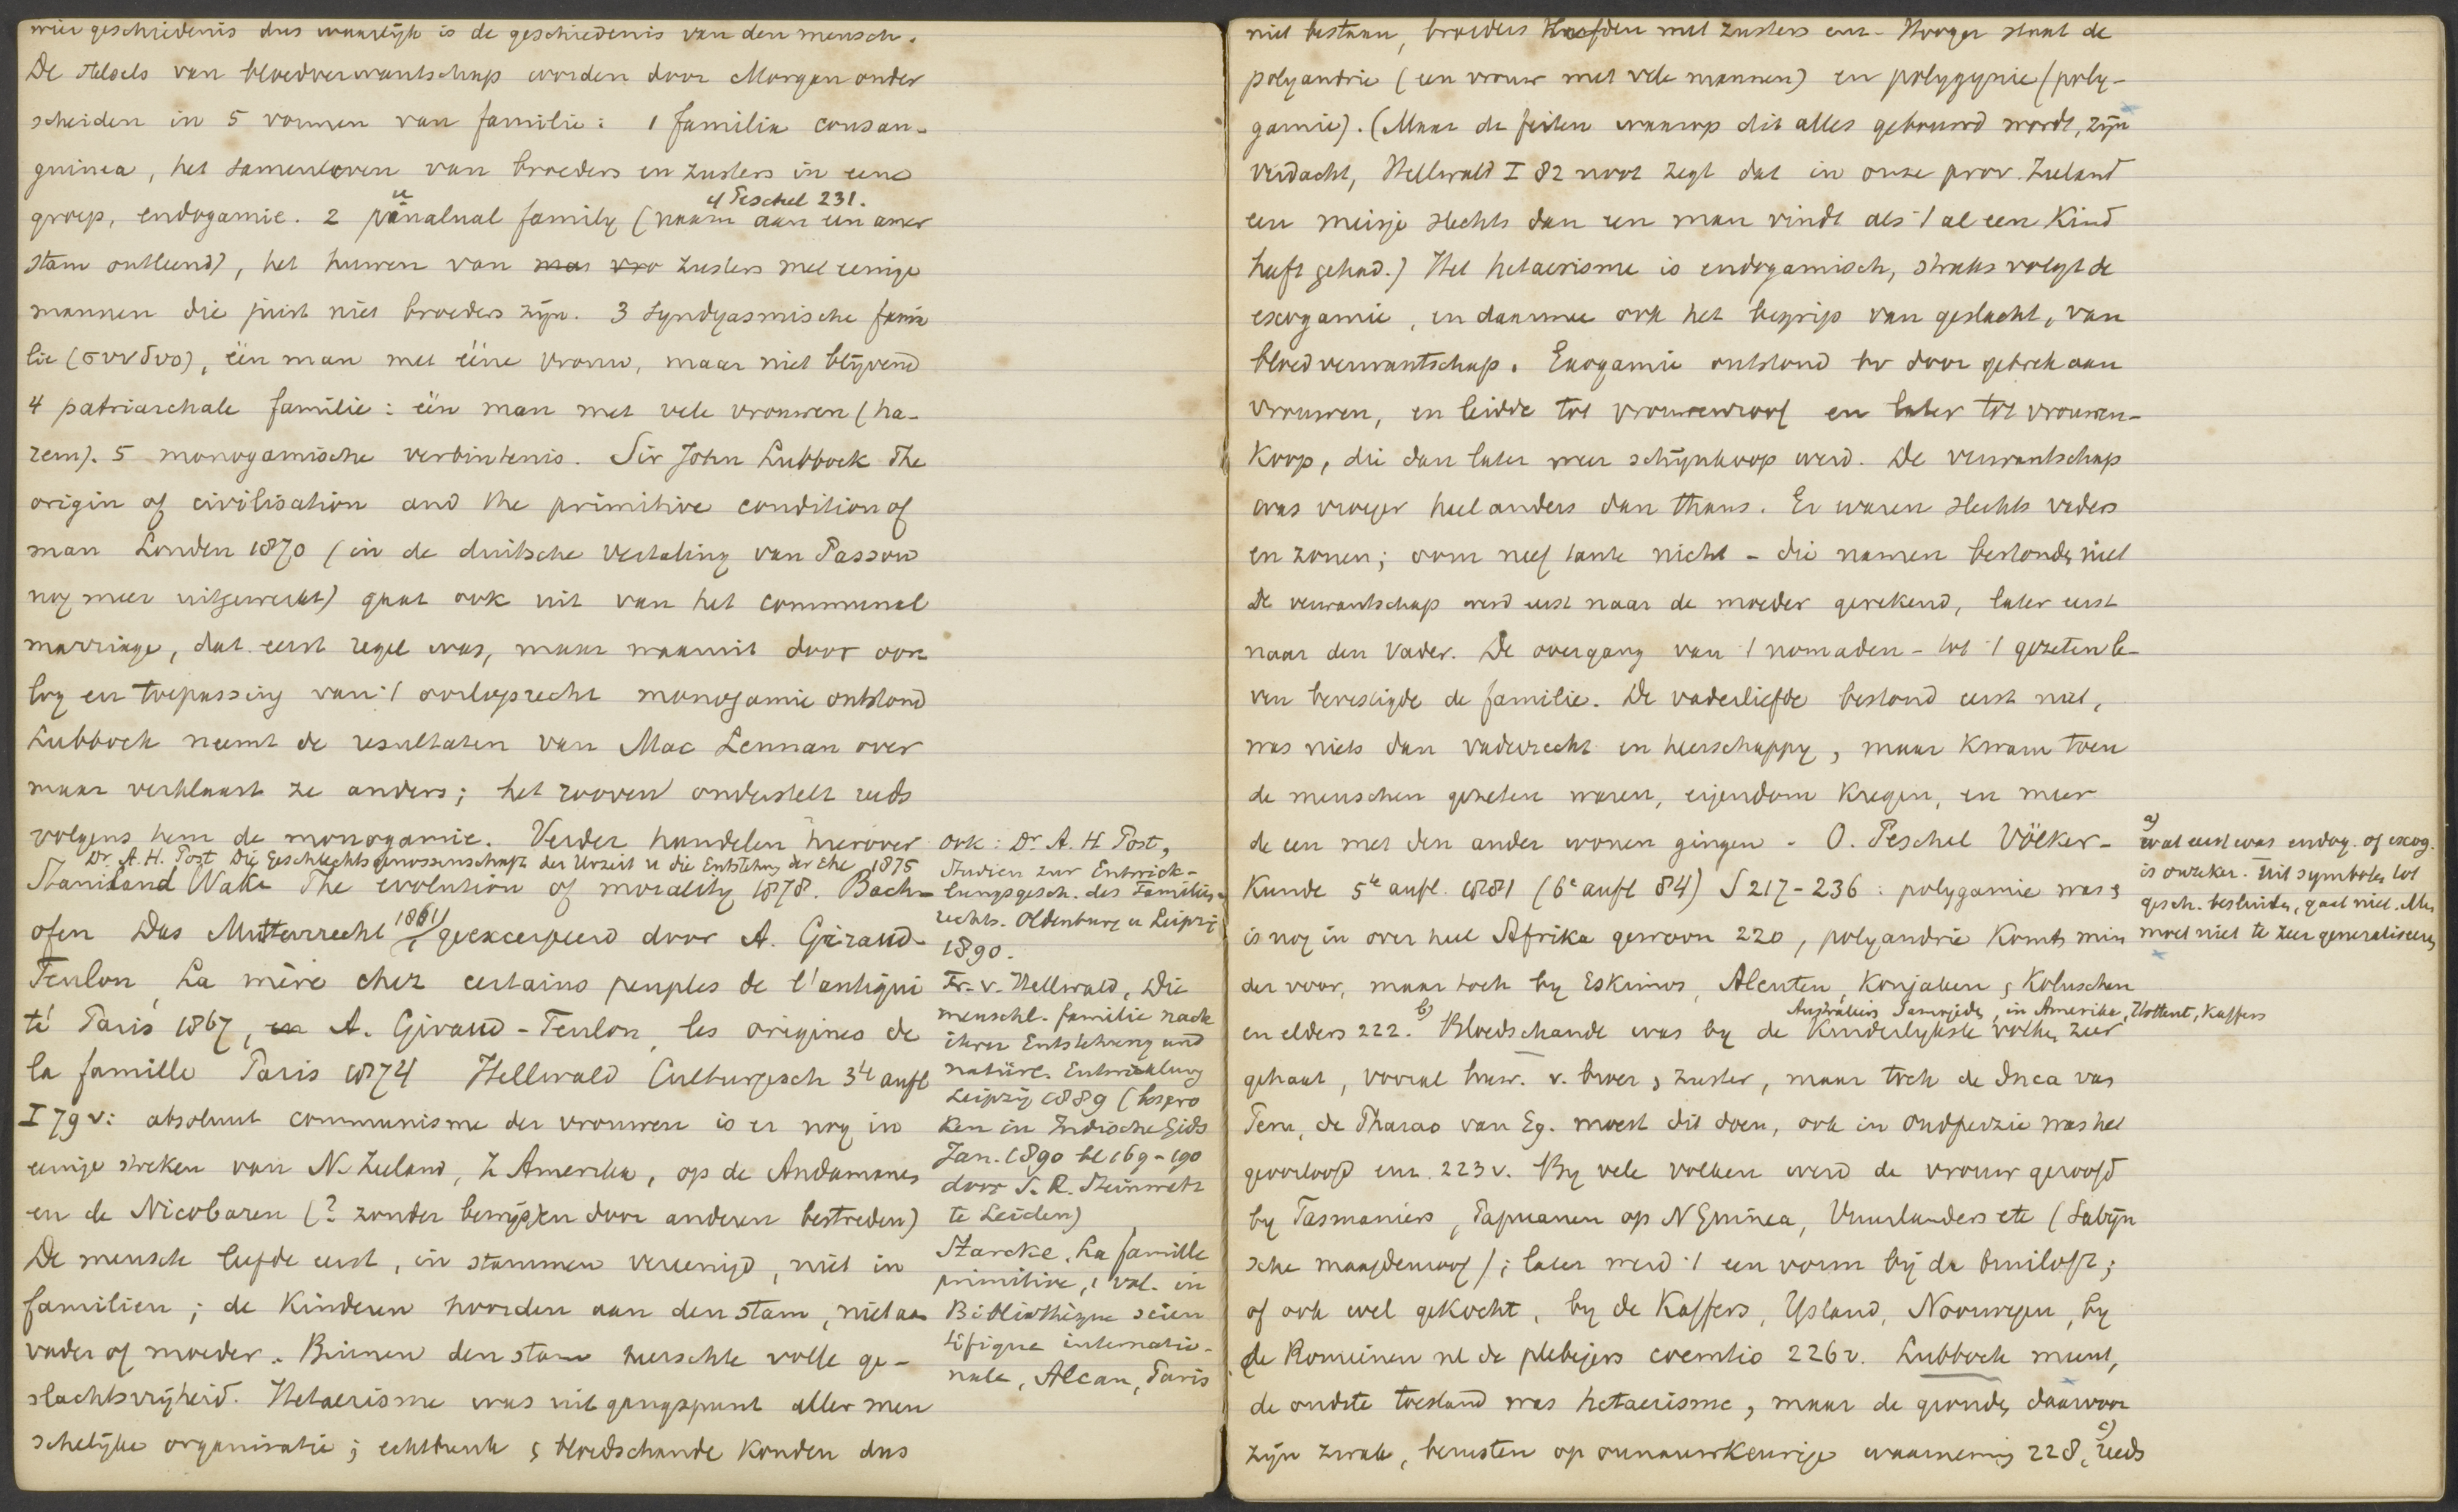 wier geschiedenis dus waarlijk is de geschiedenis van den mensch.
De stelsels van bloedverwantschap worden door Morgan onder
scheiden in 5 vormen van familie: 1 familia consan-
guinea, het samenleven van broeders en zusters in eene
cf Peschel 231.
groep, endogamie. 2 punalual family (naam aan een amer
stam ontleend), het huwen van mas vro zusters met eenige
mannen die juist niet broeders zijn. 3 Syndyasmische fami
lie (συνδυο), één man met ééne vrouw, maar niet blijvend
4 patriarchale familie: één man met vele vrouwen (ha-
rem). 5 monogamische verbintenis. Sir John Lubbock The
origin of civilisation and the primitive condition of
man Londen 1870 (in de duitsche vertaling van Passow
nog meer uitgewerkt) gaat ook uit van het communal
marriage, dat eerst regel was, maar waaruit door oor
log en toepassing van 't oorlogsrecht monogamie ontstond
Lubbock neemt de resultaten van Mac Lennan over
maar verklaart ze anders; het rooven onderstelt reeds
volgens hem de monogamie. Verder handelen hierover
Dr. A. H. Post Die Geschlechtsgenossenschaft der Urzeit u die Entstehung der Ehe 1875
Staniland Wake The evolution of morality 1878. Bach-
ofen Das Mutterrecht 1861) geexcerpeerd door A. Giraud-
Teulon, La mère chez certains peuples de l'antiqui
té Paris 1867, en A. Giraud-Teulon, les origines de
la famille Paris 1874 Hellwald Culturgesch 3te aufl
I 79 v: absoluut communisme der vrouwen is er nog in
eenige streken van N. Zeeland, Z Amerika, op de Andamanen
en de Nicobaren (? zonder bewijs) en door anderen bestreden)
De mensch leefde eerst, in stammen vereenigd, niet in
familien; de kinderen hoorden aan den stam, niet aan
vader of moeder. Binnen den stam heerschte volle ge-
slachtsvrijheid. Hetaerisme was uitgangspunt aller men
schelijke organisatie; echtbreuk & bloedschande konden dus
ook: Dr. A. H. Post,
Studien zur Entwick-
lungsgesch. des Familien-
rechts. Oldenburg u Leipzig
1890.
Fr. v. Hellwald, Die
menschl. familie nach
ihrer Entstehung und
natürl. Entwicklung
Leipzig 1889 (bespro
ken in Indische Gids
Jan. 1890 bl 169-190
door S. R. Steinmetz
te Leiden)
Starcke, La famille
primitive, 1 vol. in
Bibliothèque scien
tifique internatio-
nale, Alcan, Paris
niet bestaan, broeders leefden met zusters enz. Hooger staat de
polyandrie (een vrouw met vele mannen) en polygynie (poly-
gamie). (Maar de feiten waarop dit alles gebouwd wordt, zijn
verdacht, Hellwald I 82 noot zegt dat in onze prov. Zeeland
een meisje slechts dan een man vindt als 't al een kind
heeft gehad.) Het hetaerisme is endogamisch, straks volgt de
exogamie, en daarmee ook het begrip van geslacht, van
bloedverwantschap. Exogamie ontstond bv door gebrek aan
vrouwen, en leidde tot vrouwenroof en later tot vrouwen-
koop, die dan later weer schijnkoop werd. De verwantschap
was vroeger heel anders dan thans. Er waren slechts vaders
en zonen; oom neef tante nicht - die namen bestonden niet
De verwantschap werd eerst naar de moeder gerekend, later eerst
naar den vader. De overgang van 't nomaden- tot 't gezeten le-
ven bevestigde de familie. De vaderliefde bestond eerst niet,
was niets dan vaderrecht en heerschappy, maar kwam toen
de menschen gezeten waren, eigendom kregen, en meer
de een met den ander wonen gingen. O. Peschel Völker-
kunde 5te aufl. 1881 (6e aufl 84) S 217-236: polygamie was &
is nog in over heel Afrika gewoon 220, polyandrie komt min
der voor, maar toch by Eskimos, Aleuten, Konjaken & Koluschen
Australiers Samojeden, in Amerika, Hottent, Kaffers
en elders 222. b) Bloedschande was by de kinderlykste volken zeer
gehaat, vooral huw. v. broer & zuster, maar toch de Inca van
Peru, de Pharao van Eg. moest dit doen, ook in Oudperzie was het
geoorloofd enz. 223 v. By vele volken werd de vrouw geroofd
by Tasmaniers, Papuanen op N Guinea, Vuurlanders etc (Sabijn
sche maagdenroof); later werd 't een vorm bij de bruiloft;
of ook wel gekocht, by de Kaffers, Ysland, Noorwegen, by
de Romeinen nl de plebejers coemtio 226 v. Lubbock meent,
de oudste toestand was hetaerisme, maar de gronden daarvoor
zijn zwak, berusten op onnauwkeurige waarneming 228, c) reeds
a)
wat eerst was endog. of exog.
is onzeker. Uit symbolen tot
gesch. besluiten, gaat niet. Men
moet niet te zeer generaliseeren